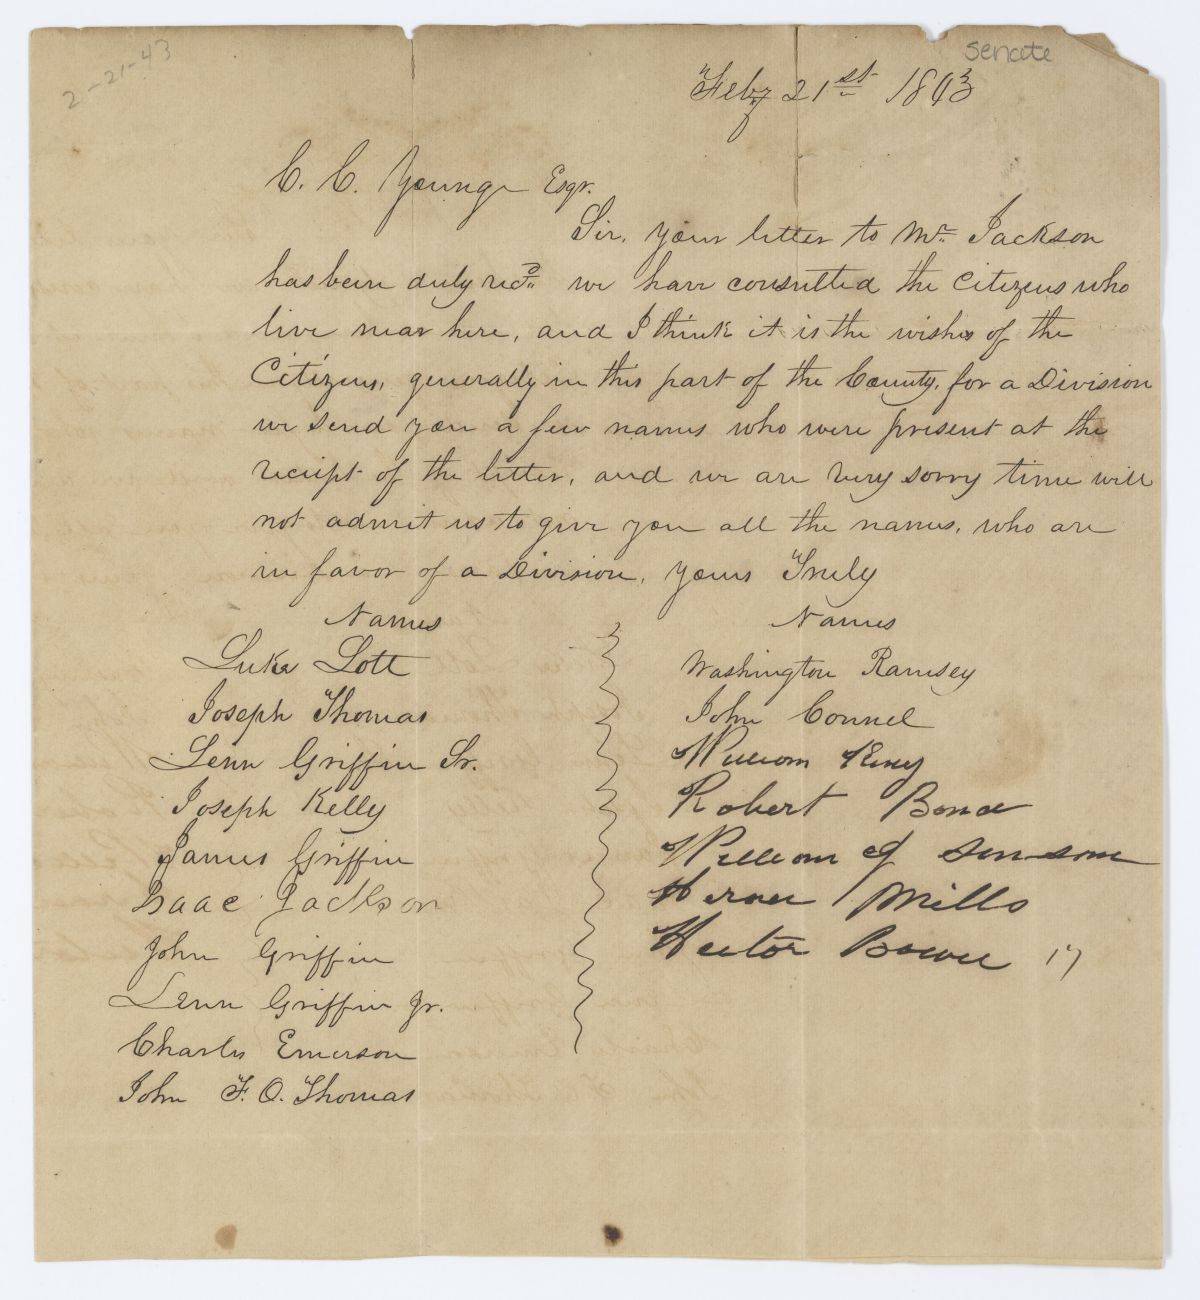 2-21-43
Senate
Feby 21st 1843
C. C. Yonge Esqr.
Sir, your letter to Mr. Jackson
has been duly recd. we have consulted the Citizens who
live near here, and I think it is the wishes of the
Citizens, generally in this part of the County, for a Division
we send you a few names who were present at the
receipt of the letter, and we are very sorry time will
not admit us to give you all the names, who are
in favor of a Division, yours Truly
Names
Luke Lott
Joseph Thomas
Lenn Griffin Sr.
Joseph Kelly
James Griffin
Isaac Jackson
John Griffin
Lenn Griffin Jr.
Charles Emerson
John F. O. Thomas
Names
Washington Ramsey
John Connel
William King
Robert Bond
William
Mills
Hector Bowee 17